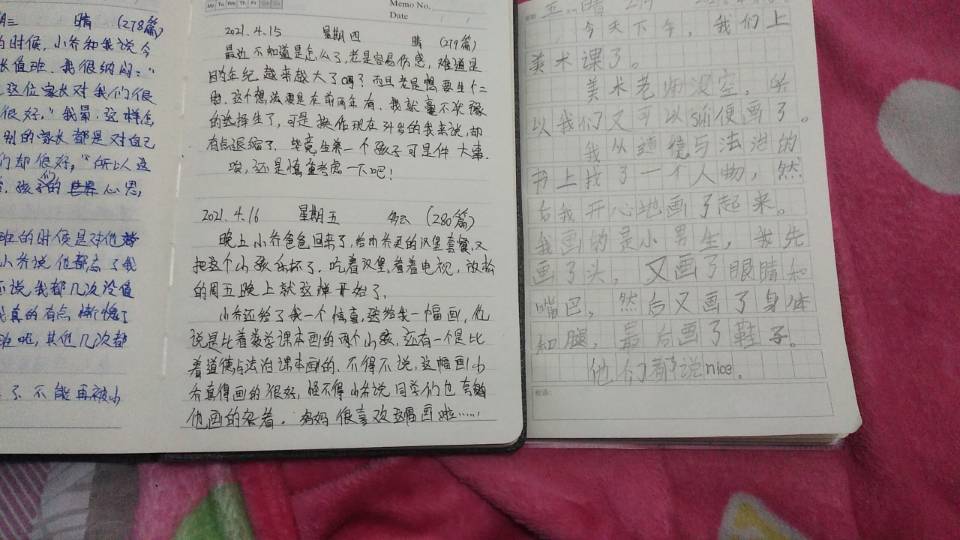 三 晴 (278篇)
的时候，小乔和我说今
长值班。我很纳闷："
这位家长对我们很
很好，"我晕，这样怎
别的家长都是对自己
们却很好。"所以这
心思，
班的时候是对他
小乔说他都忘了我
不说，我都几次没值
我真的有点惭愧了
班啦，其他几次都
了，不能再被小
Mo Tu We Th Fr Sa Su
Memo No.
Date
2021.4.15 星期四 晴 (279篇)
最近不知道是怎么了，老是容易伤感，难道是
因为年纪越来越大了吗？而且老是想要生个二
胎，这个想法要是在前两年有，我就毫不犹豫
的选择生了，可是换作现在的我来说，却
有点退缩了，毕竟生养一个孩子可是件大事.
唉，还是慎重考虑一下吧！
2021.4.16 星期五 多云 (280篇)
晚上小乔爸爸回来了，给小乔买的汉堡套餐，又
把这个小孩乐坏了。吃着汉堡，看着电视，放松
的周五晚上就这样开始了。
小乔还给了我一个惊喜，送给我一幅画，他
说是比着数学课本画的两个小孩，还有一个是比
着道德与法治课本画的。不得不说，这幅画小
乔真得画的很好，怪不得小乔说同学们也夸赞
他画的好看。妈妈很喜欢这幅画啦……
五 晴
今天下午，我们上
美术课了。
美术老师没空，所
以我们又可以sui便画了。
我从道德与法治的
书上找了一个人物，然
后我开心地画了起来。
我画的是小男生，我先
画了头，又画了眼睛和
嘴巴，然后又画了身体
和腿，最后画了鞋子。
他们都说nice。